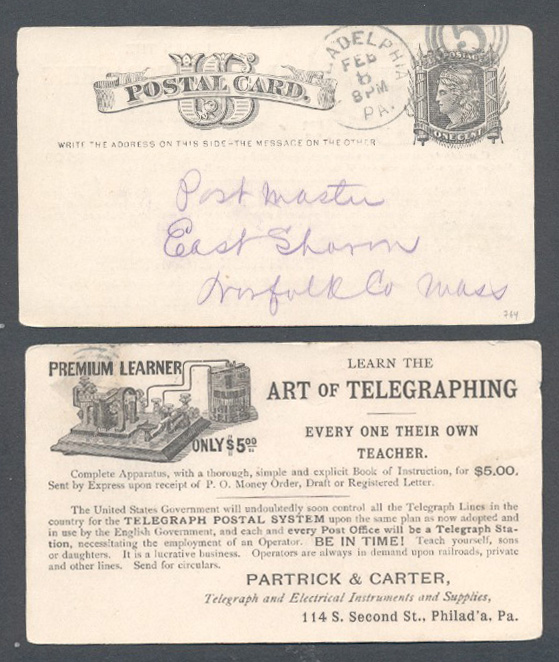 U S
POSTAL CARD.
WRITE THE ADDRESS ON THIS SIDE—THE MESSAGE ON THE OTHER
PHILADELPHIA
FEB
8PM
PA.
5
U.S. POSTAGE
ONE CENT
Post Master
East Sharon
Norfolk Co Mass
PREMIUM LEARNER
ONLY $5.00
LEARN THE
ART OF TELEGRAPHING
EVERY ONE THEIR OWN
TEACHER.
Complete Apparatus, with a thorough, simple and explicit Book of Instruction, for $5.00.
Sent by Express upon receipt of P. O. Money Order, Draft or Registered Letter.
The United States Government will undoubtedly soon control all the Telegraph Lines in the
country for the TELEGRAPH POSTAL SYSTEM upon the same plan as now adopted and
in use by the English Government, and each and every Post Office will be a Telegraph Sta-
tion, necessitating the employment of an Operator. BE IN TIME! Teach yourself, sons
or daughters. It is a lucrative business. Operators are always in demand upon railroads, private
and other lines. Send for circulars.
PARTRICK & CARTER,
Telegraph and Electrical Instruments and Supplies,
114 S. Second St., Philad'a, Pa.